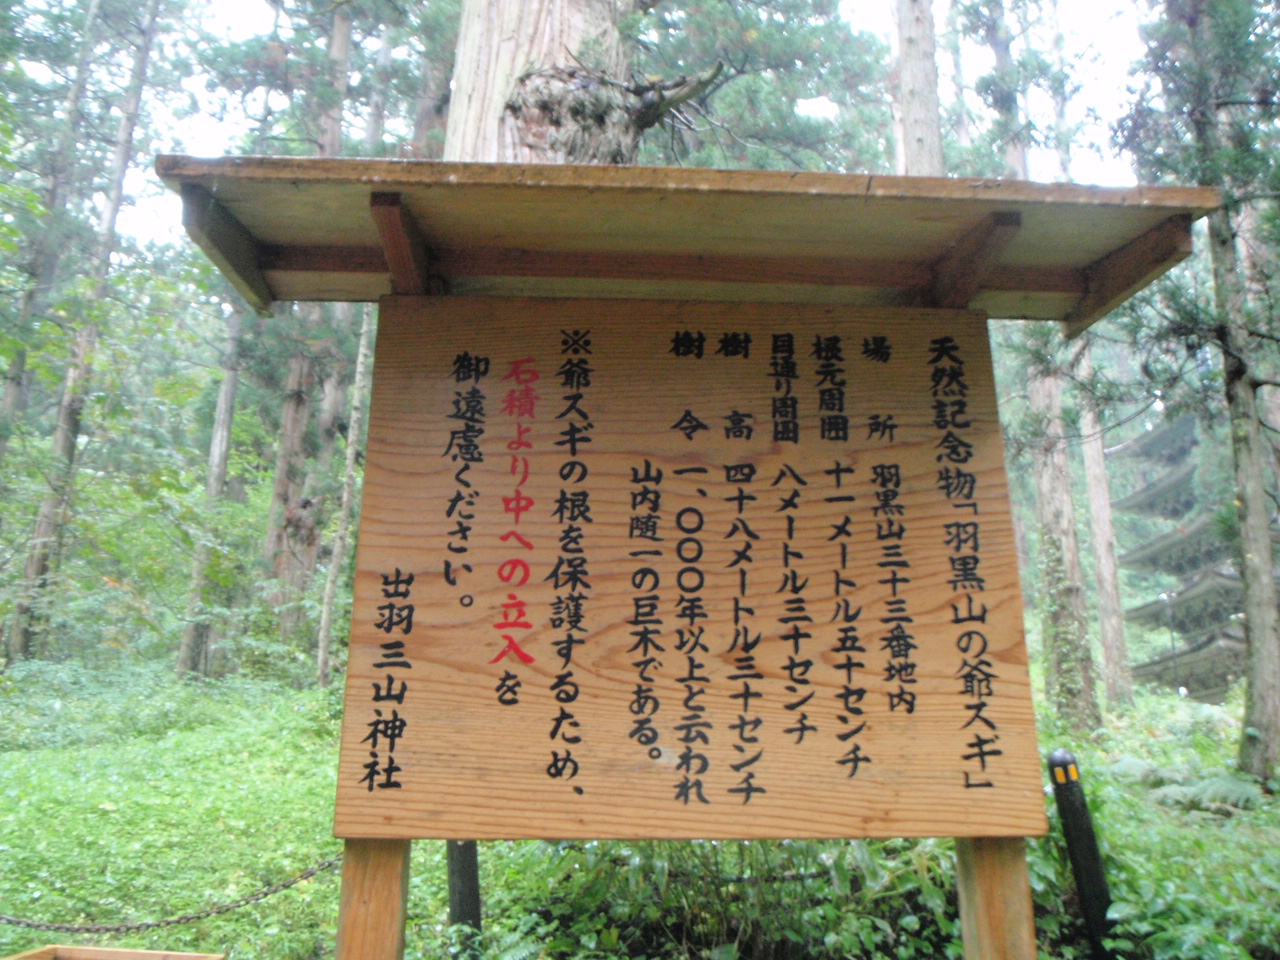 天然記念物「羽黒山の爺スギ」
場所 羽黒山三十三番地内
根元周囲 十一メートル五十センチ
目通り周囲 八メートル三十センチ
樹高 四十八メートル三十センチ
樹令 一、〇〇〇年以上と云われ
山内随一の巨木である。
※爺スギの根を保護するため、
石積より中への立入を
御遠慮ください。
出羽三山神社